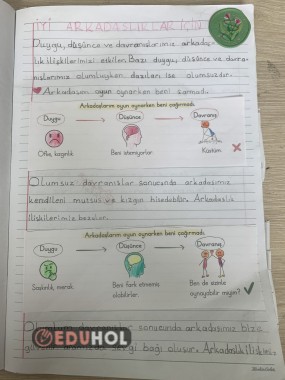 İYİ ARKADAŞLIKLAR İÇİN
Duygu, düşünce ve davranışlarımız arkadaş-
lık ilişkilerimizi etkiler. Bazı duygu, düşünce ve davra-
nışlarımız olumluyken bazıları ise olumsuzdur.
Arkadaşım oyun oynarken beni çağırmadı.
Arkadaşlarım oyun oynarken beni çağırmadı.
Duygu Düşünce Davranış
Öfke, kızgınlık Beni istemiyorlar. Küstüm
Olumsuz davranışlar sonucunda arkadaşımız
kendileni mutsuz ve kızgın hissedebilir. Arkadaşlık
ilişkilerimiz bozulur.
Arkadaşlarım oyun oynarken beni çağırmadı.
Duygu Düşünce Davranış
Sakinlik, merak Beni fark etmemiş olabilirler. Ben de sizinle oynayabilir miyim?
davranışlar sonucunda arkadaşımız bize
sevgi bağı oluşur. Arkadaşlık
EDUHOL